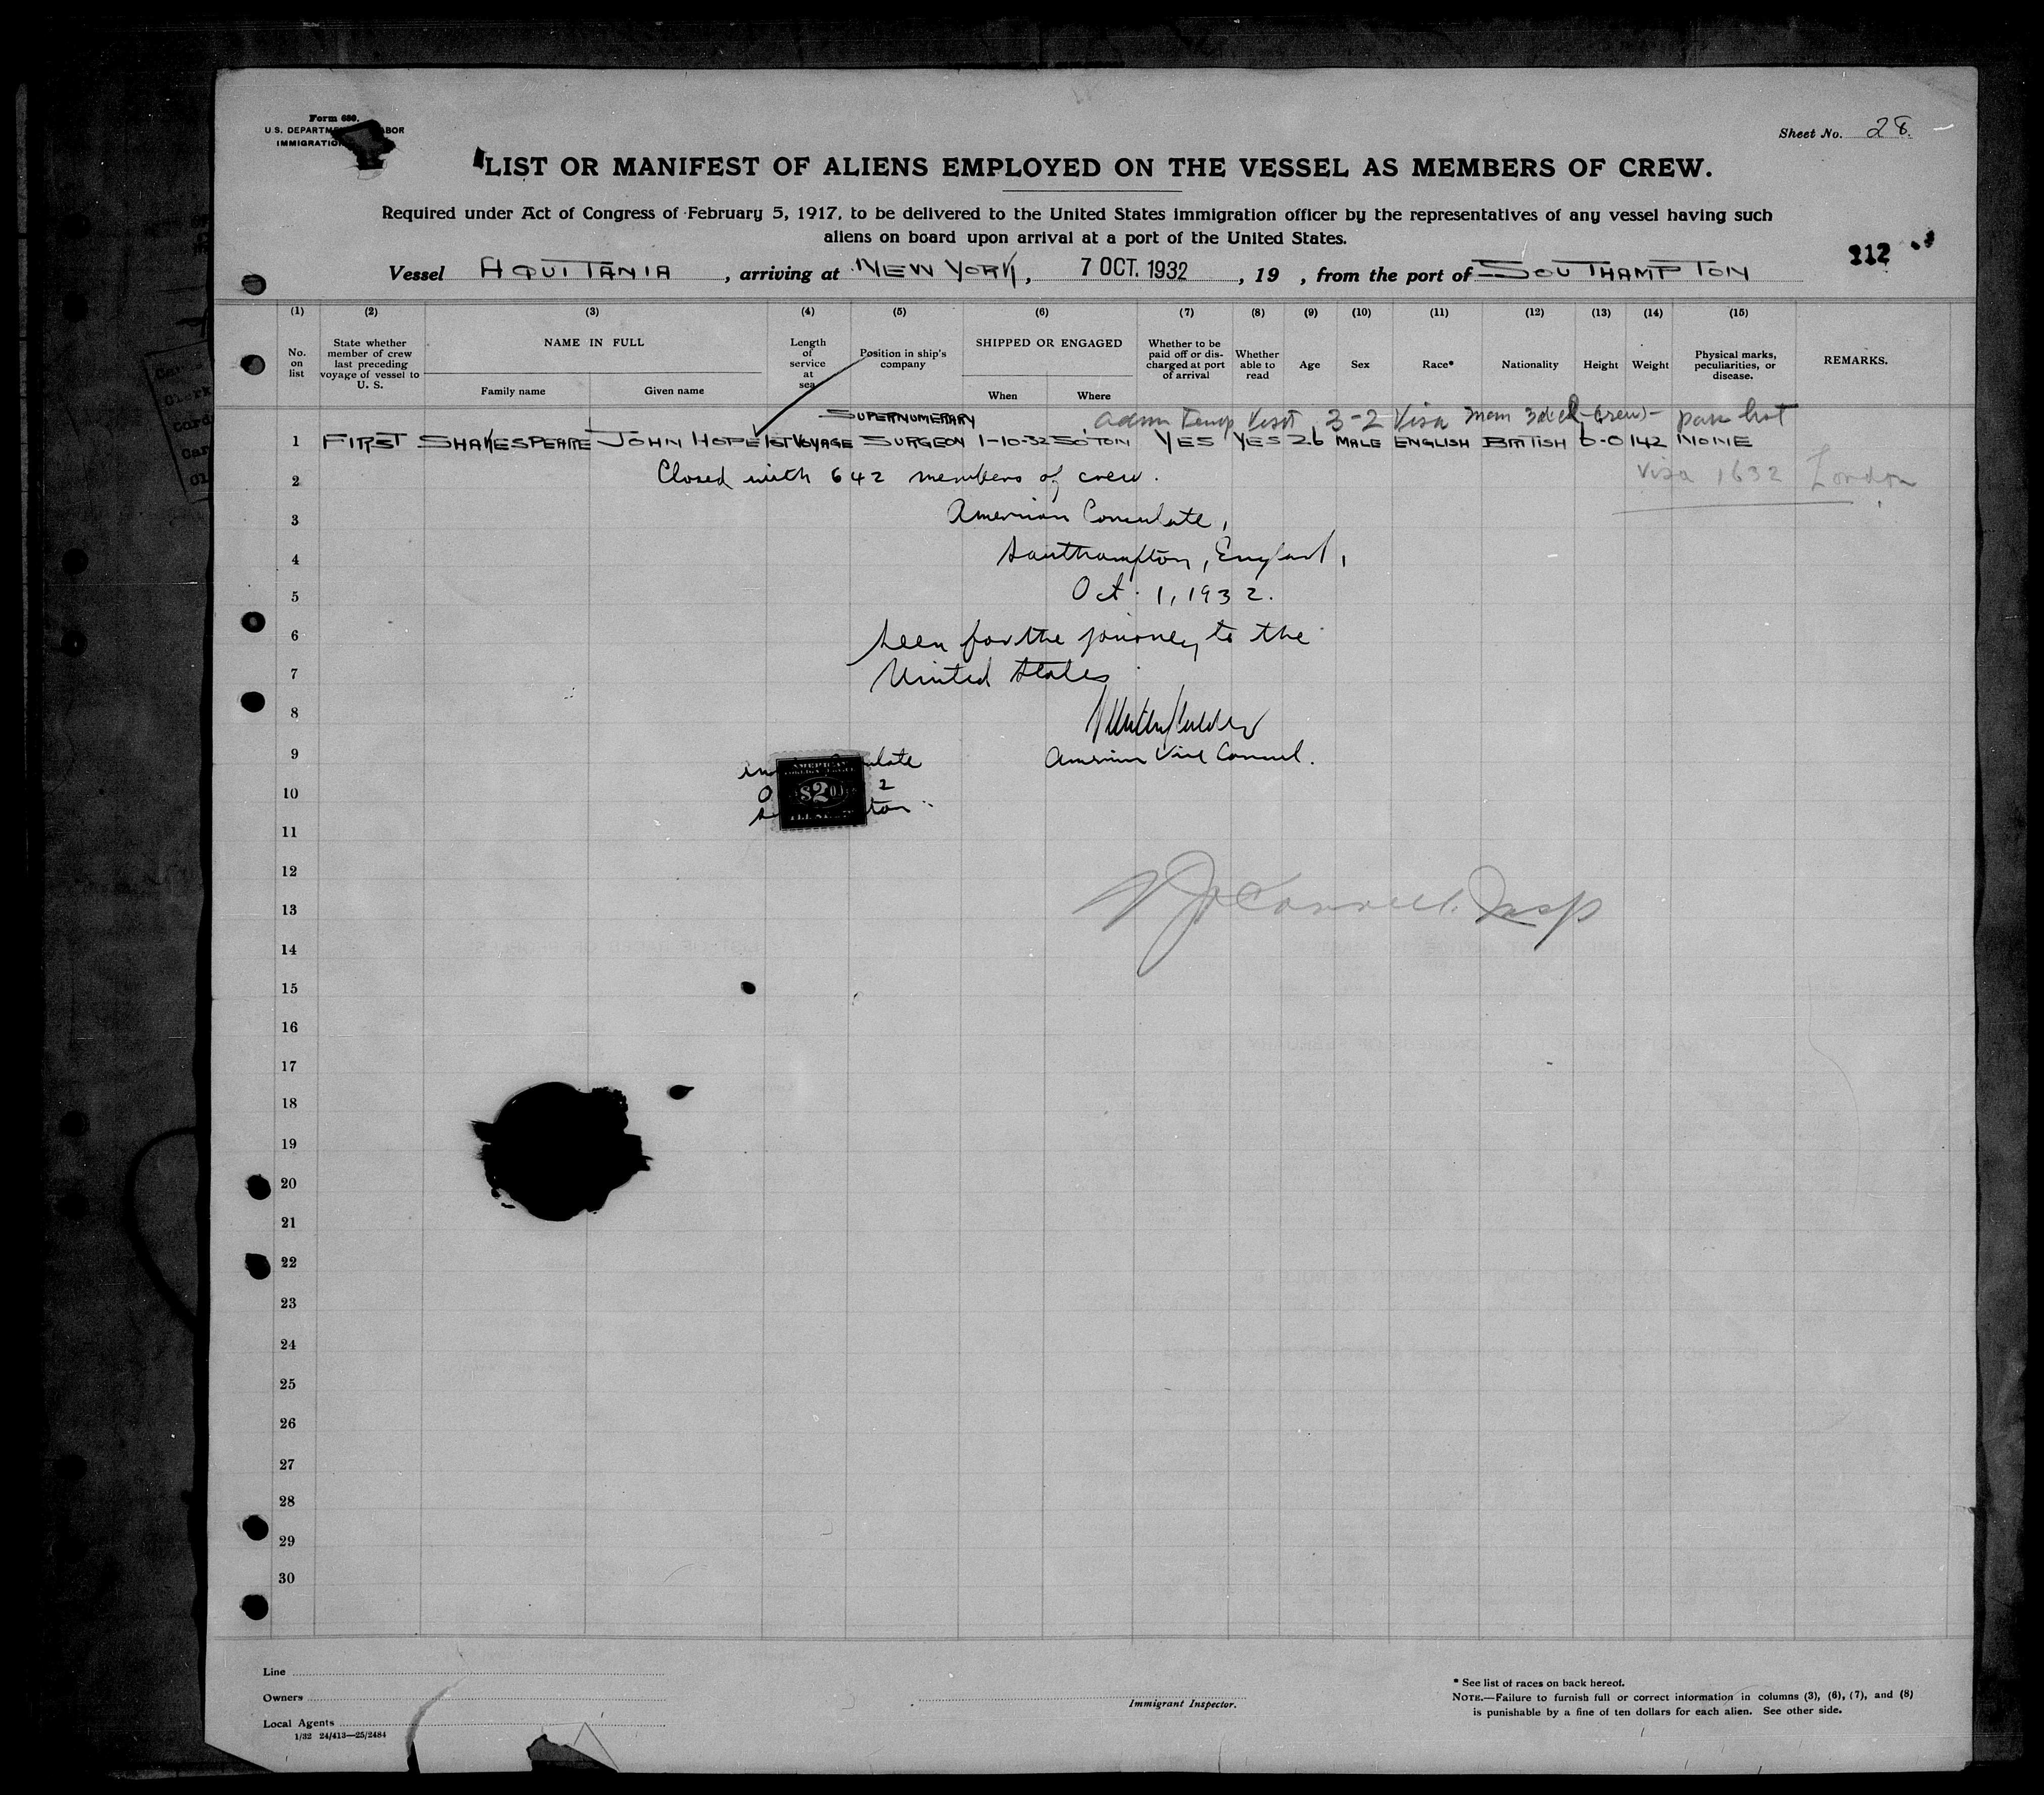 Form 680.
U.S. DEPARTM ABOR
IMMIGRATIO
Sheet No. 28.
LIST OR MANIFEST OF ALIENS EMPLOYED ON THE VESSEL AS MEMBERS OF CREW.
Required under Act of Congress of February 5, 1917, to be delivered to the United States immigration officer by the representatives of any vessel having such
aliens on board upon arrival at a port of the United States.
212
Vessel AQUITANIA, arriving at NEW YORK, 7 OCT. 1932, 19 , from the port of SOUTHAMPTON
(1) (2) (3) (4) (5) (6) (7) (8) (9) (10) (11) (12) (13) (14) (15)
No. on list
State whether member of crew last preceding voyage of vessel to U. S.
NAME IN FULL
Family name Given name
Length of service at sea
Position in ship's company
SHIPPED OR ENGAGED
When Where
Whether to be paid off or discharged at port of arrival
Whether able to read
Age
Sex
Race*
Nationality
Height
Weight
Physical marks, peculiarities, or disease.
REMARKS.
SUPERNUMERARY
Adm Temp Visit 3-2 Visa
1 FIRST SHAKESPEARE JOHN HOPE 1ST VOYAGE SURGEON 1-10-32 SO'TON YES YES 26 MALE ENGLISH BRITISH 6-0 142 NONE
2 Closed with 642 members of crew.
Visa 1632 London
3 American Consulate,
4 Southampton, England,
5 Oct. 1, 1932.
6 Seen for the journey to the
7 United States
8
9 American Vice Consul.
AMERICAN
10 $2.00
11
12
13 Insp
14
15
16
17
18
19
20
21
22
23
24
25
26
27
28
29
30
Line
Owners
Local Agents
1/32 24/413—25/2484
Immigrant Inspector.
* See list of races on back hereof.
NOTE.—Failure to furnish full or correct information in columns (3), (6), (7), and (8)
is punishable by a fine of ten dollars for each alien. See other side.